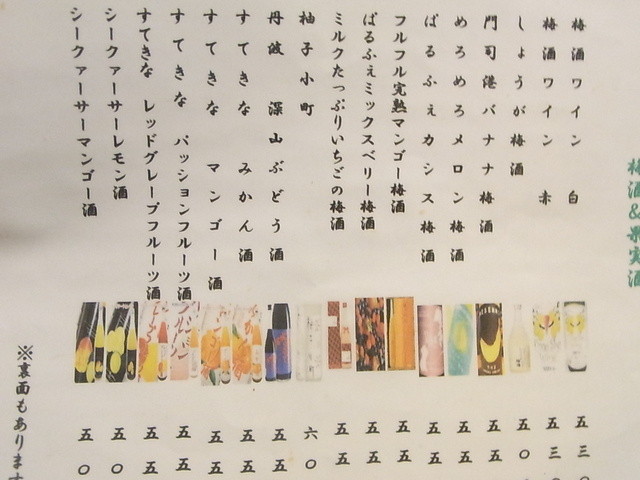 梅酒&果実酒
梅酒ワイン 白
梅酒ワイン 赤
しょうが梅酒
門司港バナナ梅酒
めろめろメロン梅酒
ぱるふぇカシス梅酒
フルフル完熟マンゴー梅酒
ぱるふぇミックスベリー梅酒
ミルクたっぷりいちごの梅酒
柚子小町
丹波 深山ぶどう酒
すてきな みかん酒
すてきな マンゴー酒
すてきな パッションフルーツ酒
すてきな レッドグレープフルーツ酒
シークァーサーレモン酒
シークァーサーマンゴー酒
五三〇
五三
五〇
五五
五五
五五
五五
五五
五五
六〇
五五
五五
五五
五五
五五
五〇
五〇
※裏面もあります